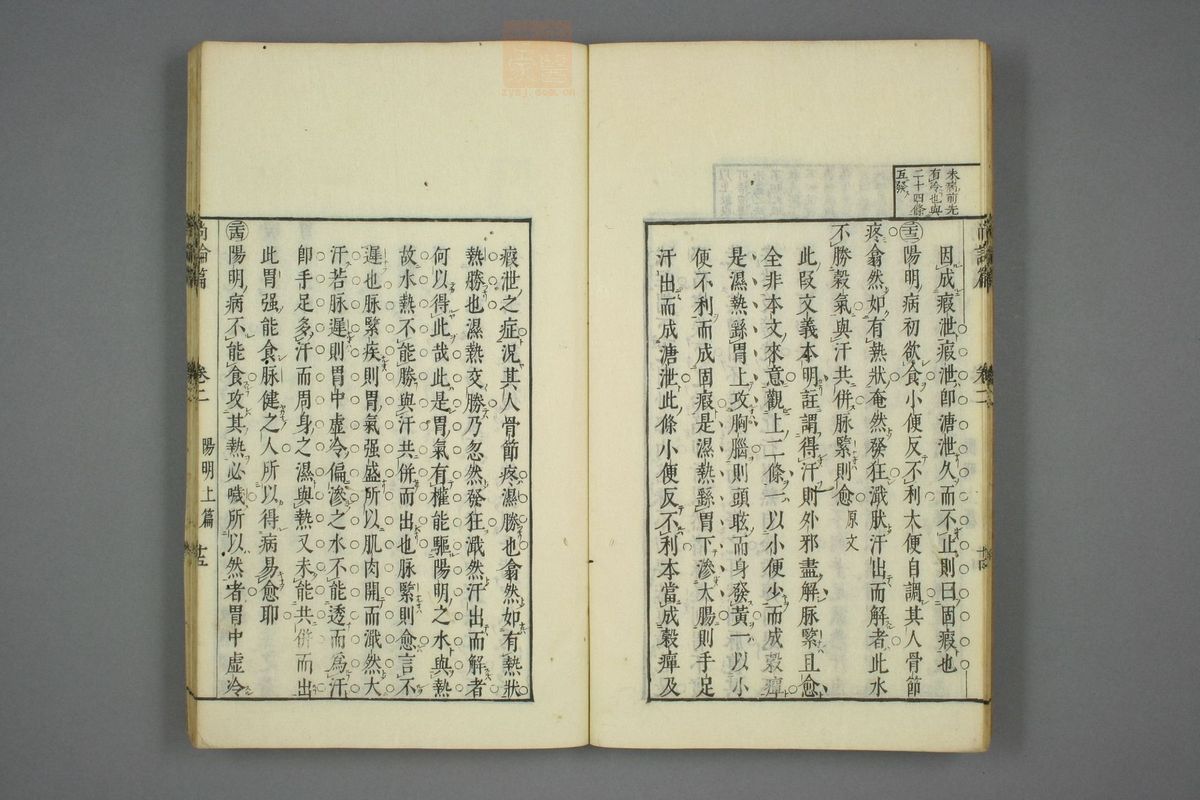 未病前先
有冷也與
二十四條
互發
因成瘕泄瘕泄即溏泄久而不止則曰固瘕也
陽明病初欲食小便反不利大便自調其人骨節
疼翕然如有熱狀奄然發狂濈然汗出而解者此水
不勝穀氣與汗共併脉緊則愈原文
此段文義本明註謂得汗則外邪盡解脉緊且愈
全非本文來意觀上二條一以小便少而成穀癉
是濕熱繇胃上攻胸腦則頭眩而身發黃一以小
便不利而成固瘕是濕熱繇胃下滲大腸則手足
汗出而成溏泄此條小便反不利本當成穀癉及
卷二
瘕泄之症況其人骨節疼濕勝也翕然如有熱狀
熱勝也濕熱交勝乃忽然發狂濈然汗出而解者
何以得此哉此是胃氣有權能驅陽明之水與熱
故水熱不能勝與汗共併而出也脉緊則愈言不
遲也脉緊疾則胃氣强盛所以肌肉開而濈然大
汗若脉遲則胃中虛冷偏滲之水不能透而爲汗
即手足多汗而周身之濕與熱又未能共併而出
此胃强能食脉健之人所以得病易愈耶
陽明病不能食攻其熱必噦所以然者胃中虛冷
尚論篇
卷二
陽明上篇
zysj.com.cn